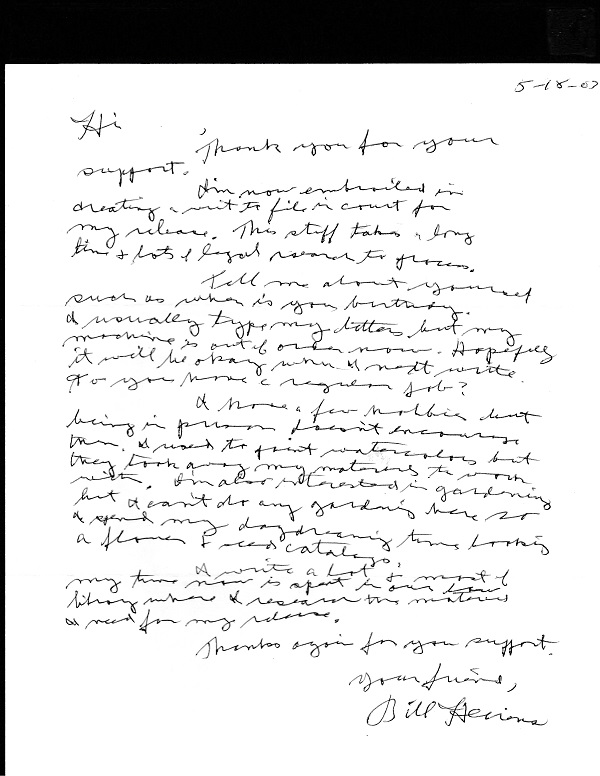 5-18-07
Hi
Thank you for your
support.
I'm now embroiled in
creating a writ to file in court for
my release. This stuff takes a long
time & lots of legal research to process.
Tell me about yourself
such as when is your birthday.
I usually type my letters but my
machine is out of order now. Hopefully
it will be okay when I next write.
Do you have a regular job?
I have a few hobbies but
being in prison doesn't encourage
them. I used to paint watercolors but
they took away my materials to work
with. I'm also interested in gardening
but I can't do any gardening here so
I spend my daydreaming time looking
a flower & seed catalogs.
I write a lot & most of
my time now is spent in our law
library where I research the material
I need for my release.
Thanks again for your support.
Your friend,
Bill